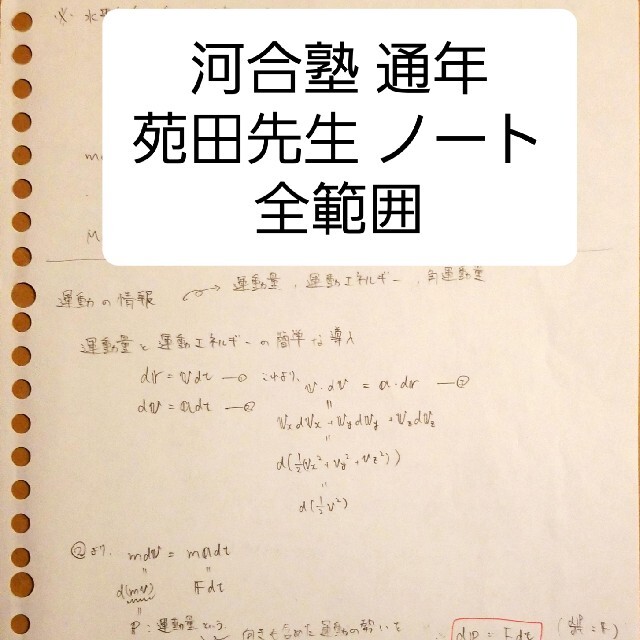 河合塾 通年
苑田先生 ノート
全範囲
運動の情報 → 運動量, 運動エネルギー, 角運動量
運動量と運動エネルギーの簡単な導入
dr = vdt ―① これより, v・dv = a・dr ―②
dv = adt ―②
vxdvx + vydvy + vzdvz
d(½(vx²+vy²+vz²))
d(½v²)
②より, mdv = madt
d(mv) Fdt
P:運動量という. 向きも含めた運動の勢いを
∴ dP = Fdt (dP/dt = F)